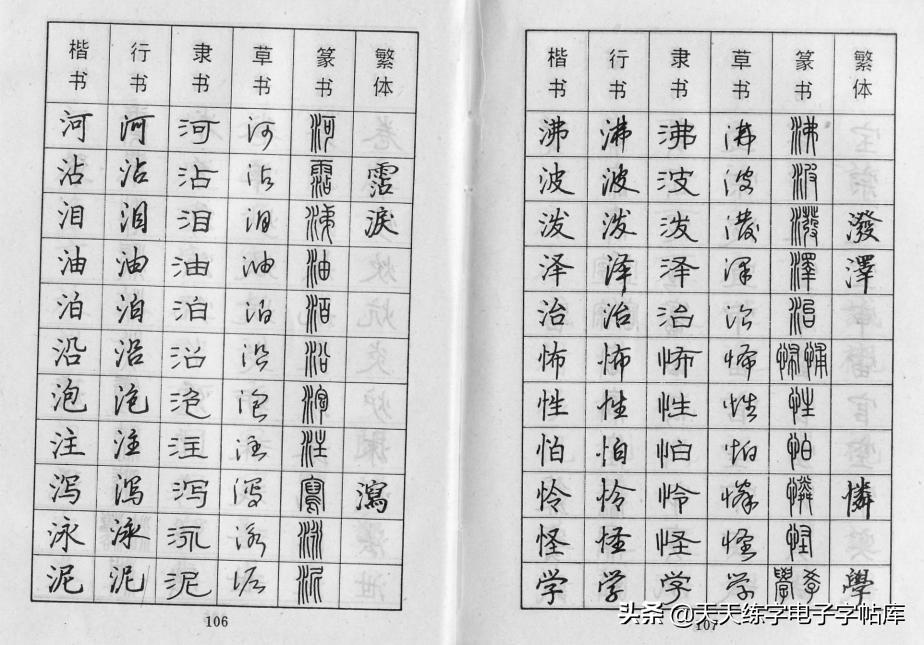 楷书 行书 隶书 草书 篆书 繁体
河 河 河 河 河
沾 沾 沾 沾 霑 霑
泪 泪 泪 泪 涕 淚
油 油 油 油 油
泊 泊 泊 泊 洦
沿 沿 沿 沿 沿
泡 泡 泡 泡 泡
注 注 注 注 注
泻 泻 泻 泻 寫 瀉
泳 泳 泳 泳 泳
泥 泥 泥 泥 泥
106
楷书 行书 隶书 草书 篆书 繁体
沸 沸 沸 沸 沸
波 波 波 波 波
泼 泼 泼 泼 潑 潑
泽 泽 泽 泽 澤 澤
治 治 治 治 治
怖 怖 怖 怖 悑怖
性 性 性 性 性
怕 怕 怕 怕 怕
怜 怜 怜 怜 憐 憐
怪 怪 怪 怪 怪
学 学 学 学 學 學
107
头条 @天天练字电子字帖库